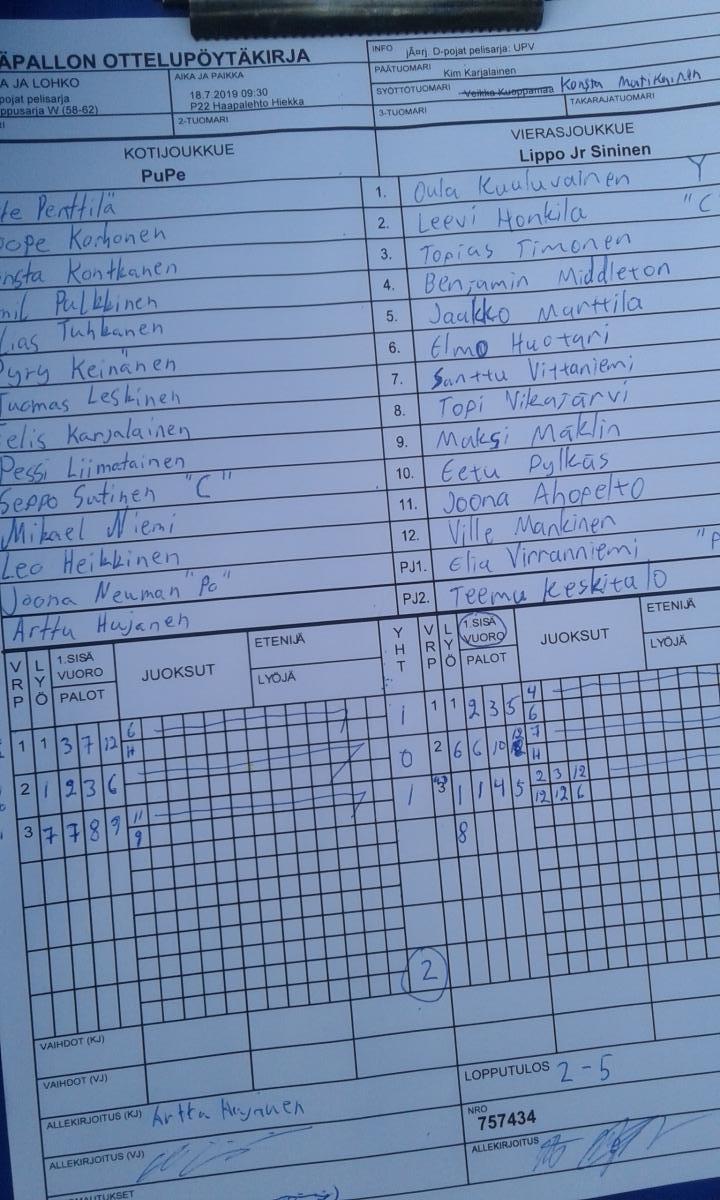 ÄPALLON OTTELUPÖYTÄKIRJA
INFO jÄorj. D-pojat pelisarja: UPV
PÄÄTUOMARI Kim Karjalainen
A JA LOHKO
pojat pelisarja
ppusarja W (58-62)
AIKA JA PAIKKA
18.7.2019 09:30
P22 Haapalehto Hiekka
SYÖTTÖTUOMARI Veikka Kuoppamaa Konsta Matikainen
RI
2-TUOMARI
3-TUOMARI
TAKARAJATUOMARI
KOTIJOUKKUE
PuPe
VIERASJOUKKUE
Lippo Jr Sininen
te Penttilä
1. Oula Kuuluvainen Y
oope Korhonen
2. Leevi Honkila "C
onsta Kontkanen
3. Topias Timonen
mil Pulkkinen
4. Benjamin Middleton
lias Tuhkanen
5. Jaakko Marttila
Pyry Keinänen
6. Elmo Huotari
Tuomas Leskinen
7. Santtu Vittaniemi
eelis Karjalainen
8. Topi Vikajärvi
Pessi Liimatainen
9. Maksi Mäklin
Seppo Sutinen "C"
10. Eetu Pylkäs
Mikael Niemi
11. Joona Ahopelto
Leo Heikkinen
12. Ville Mankinen
Joona Neuman "Po"
PJ1. Elia Virranniemi "P
Arttu Hujanen
PJ2. Teemu Keskitalo
VRP LYÖ 1.SISÄ VUORO PALOT JUOKSUT ETENIJÄ LYÖJÄ YHT
VRP LYÖ 1.SISÄ VUORO PALOT JUOKSUT ETENIJÄ LYÖJÄ
1 1 3 7 12 6 H 1
1 1 2 3 5 4 6
2 1 2 3 6 0
2 6 6 10 12 7 H
3 7 7 8 9 11 9 1
3 1 1 4 5 2 3 12 12 12 6
8
2
VAIHDOT (KJ)
VAIHDOT (VJ)
LOPPUTULOS 2-5
ALLEKIRJOITUS (KJ) Arttu Hujanen
NRO
757434
ALLEKIRJOITUS (VJ)
ALLEKIRJOITUS